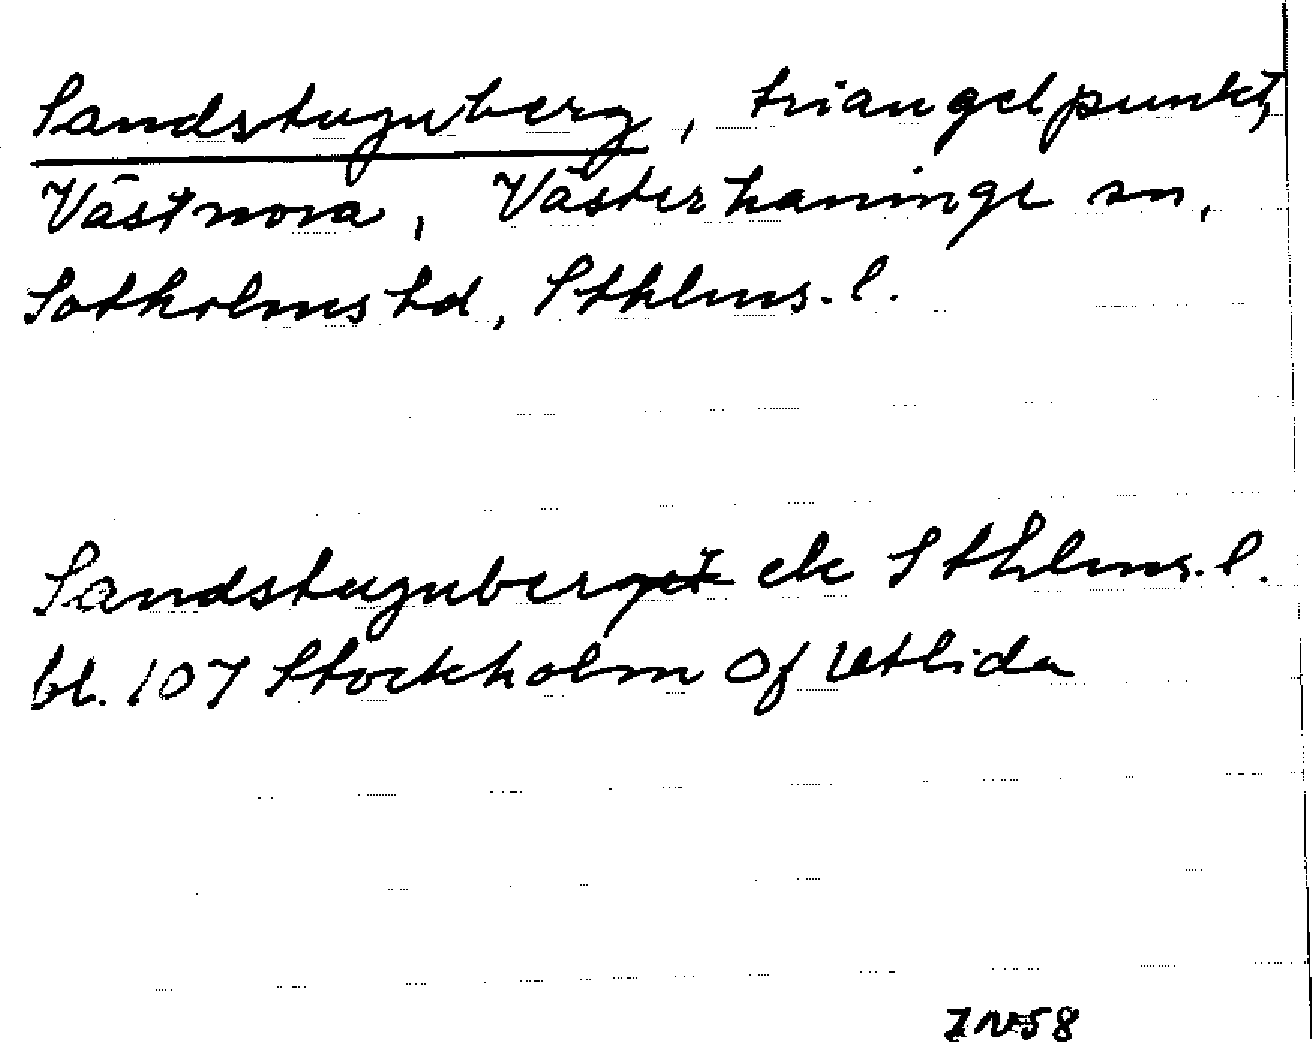 Sandstuguberg, triangelpunkt,
Västnora, Västerhaninge sn,
Sotholms hd, Sthlms. l.
Sandstuguberget ek Sthlms. l.
bl. 107 Stockholm Of Utlida